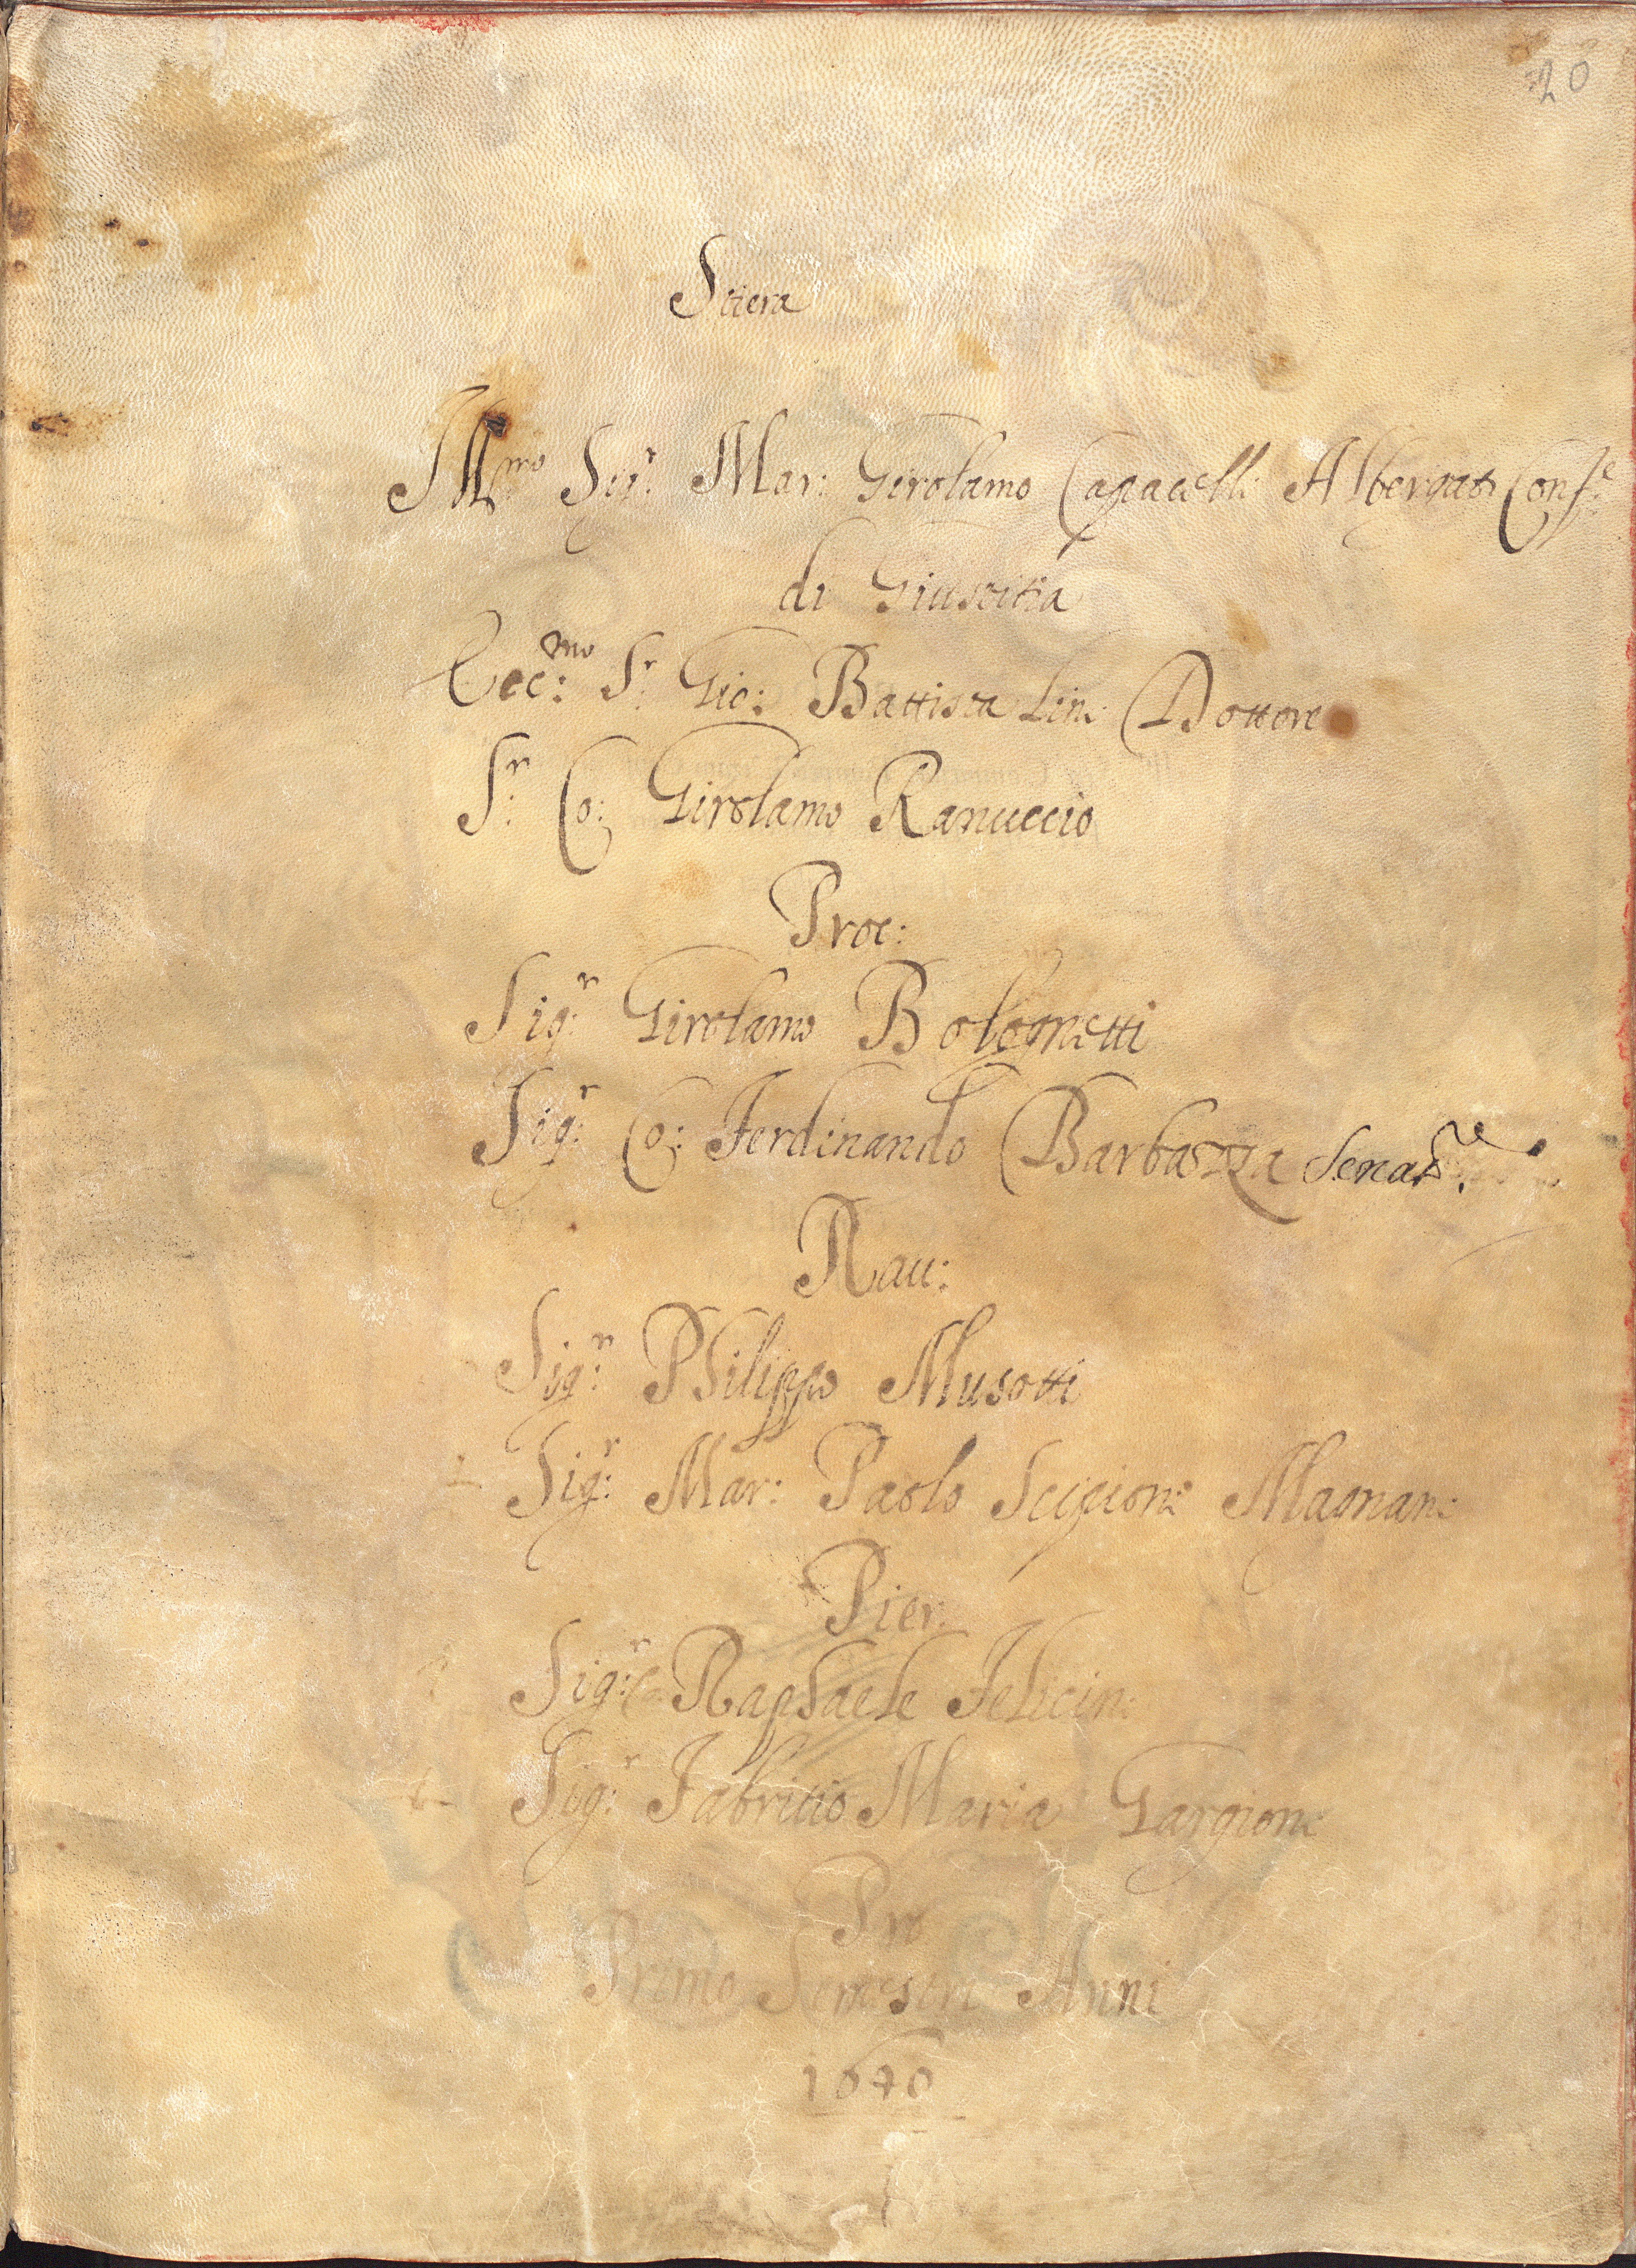 20
Stiera
Ill.mo Sig.r Mar: Girolamo Capacelli Albergati Conf.e
di Giustitia
Ecc:mo S.r Gio: Battista Lini Dottore
S.r Co: Girolamo Ranuccio
Proc:
Sig.r Girolamo Bolognetti
Sig.r Co: Ferdinando Barbazza Senat.re
Rau:
Sig.r Philippo Musotti
Sig.r Mar: Paolo Scipione Magnani
Pier:
Sig.r Co: Raphaele Felicini
Sig.r Fabritio Maria Gargioni
Pro
Primo Semestre Anni
1640